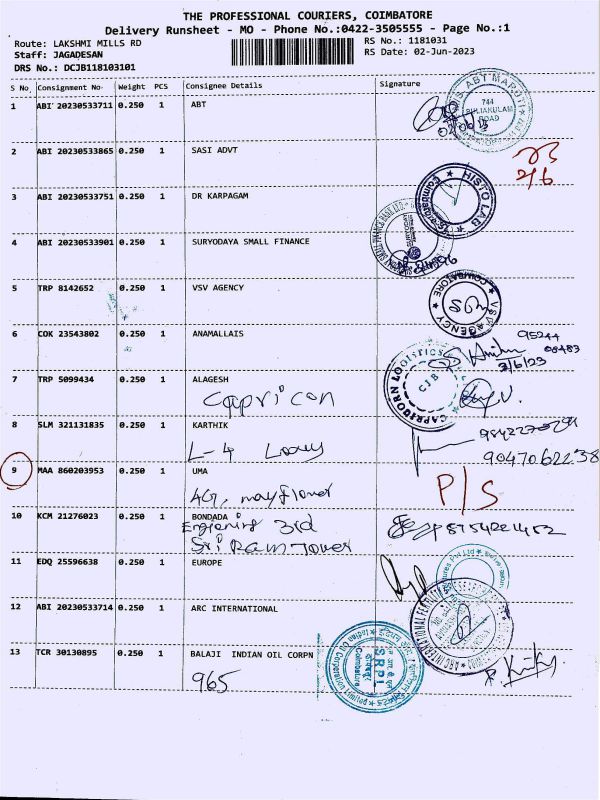 THE PROFESSIONAL COURIERS, COIMBATORE
Delivery Runsheet - MO - Phone No.:0422-3505555 - Page No.:1
Route: LAKSHMI MILLS RD
RS No.: 1181031
Staff: JAGADESAN
RS Date: 02-Jun-2023
DRS No.: DCJB118103101
S No Consignment No Weight PCS Consignee Details Signature
1 ABI 20230533711 0.250 1 ABT
744
PULIAKULAM
ROAD
2 ABI 20230533865 0.250 1 SASI ADVT
2/6
3 ABI 20230533751 0.250 1 DR KARPAGAM
HISTO LAB
Coimbatore
4 ABI 20230533901 0.250 1 SURYODAYA SMALL FINANCE
5 TRP 8142652 0.250 1 VSV AGENCY
VSV AGENCY
COIMBATORE
6 COK 23543802 0.250 1 ANAMALLAIS
95244
2/6/23
7 TRP 5099434 0.250 1 ALAGESH
Capricon
CAPRICORN LOGISTICS
CJB
8 SLM 321131835 0.250 1 KARTHIK
L-4
9047062238
9 MAA 860203953 0.250 1 UMA
4G, mayflower
P/S
10 KCM 21276023 0.250 1 BONDADA
3rd
Sri Ram Tower
8754221452
11 EDQ 25596638 0.250 1 EUROPE
12 ABI 20230533714 0.250 1 ARC INTERNATIONAL
13 TCR 30130895 0.250 1 BALAJI INDIAN OIL CORPN
965
Indian Oil Corporation Limited
SRPI
Coimbatore